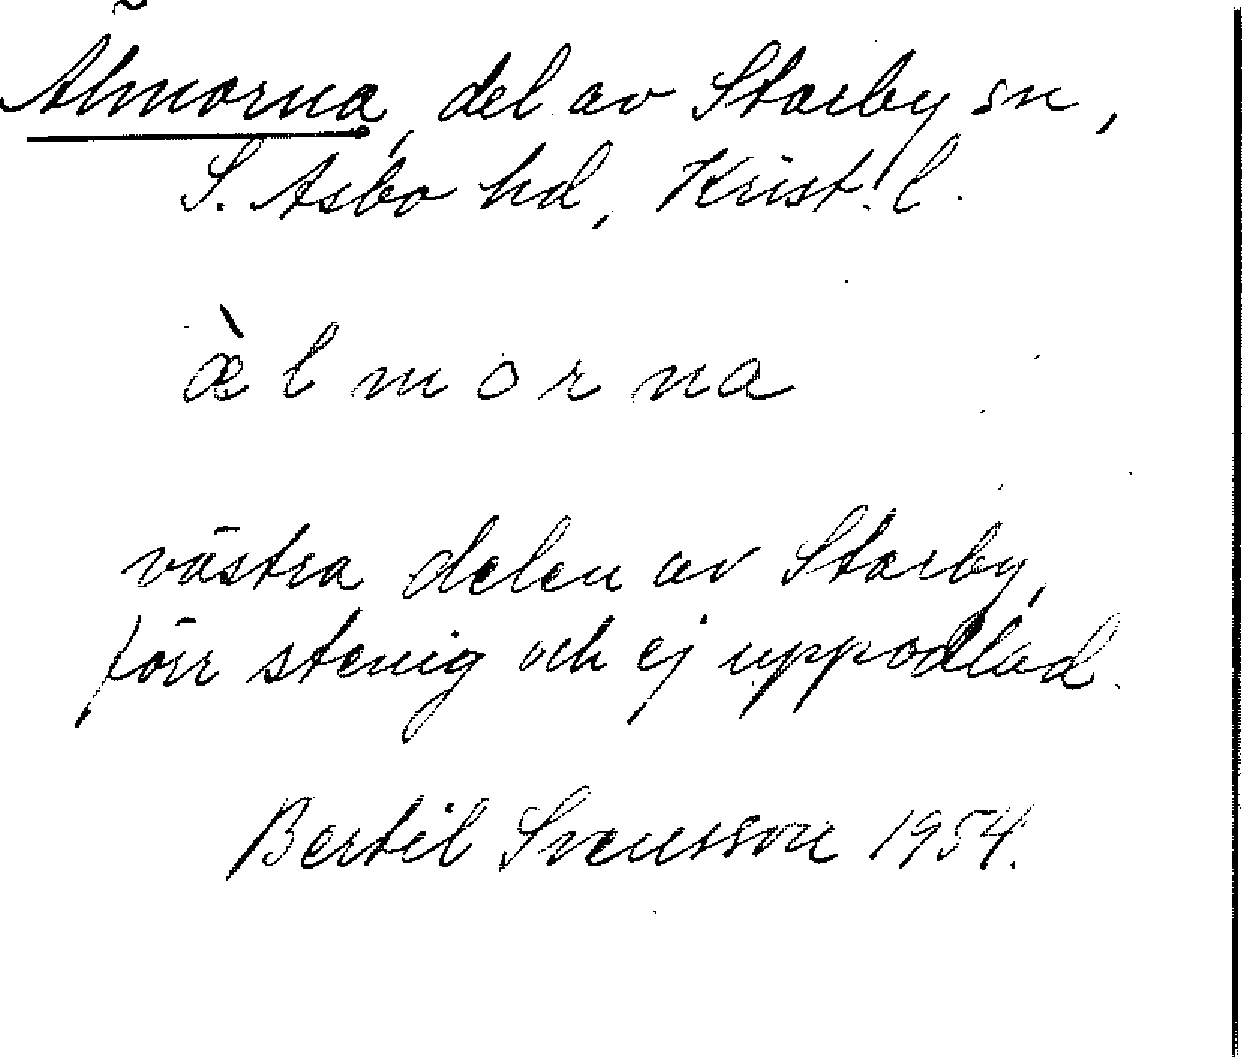 Älmorna, del av Starby sn,
S. Asbo hd, Krist. l.
æ̀ l m o r na
västra delen av Starby,
förr stenig och ej uppodlad.
Bertil Svensson 1954.